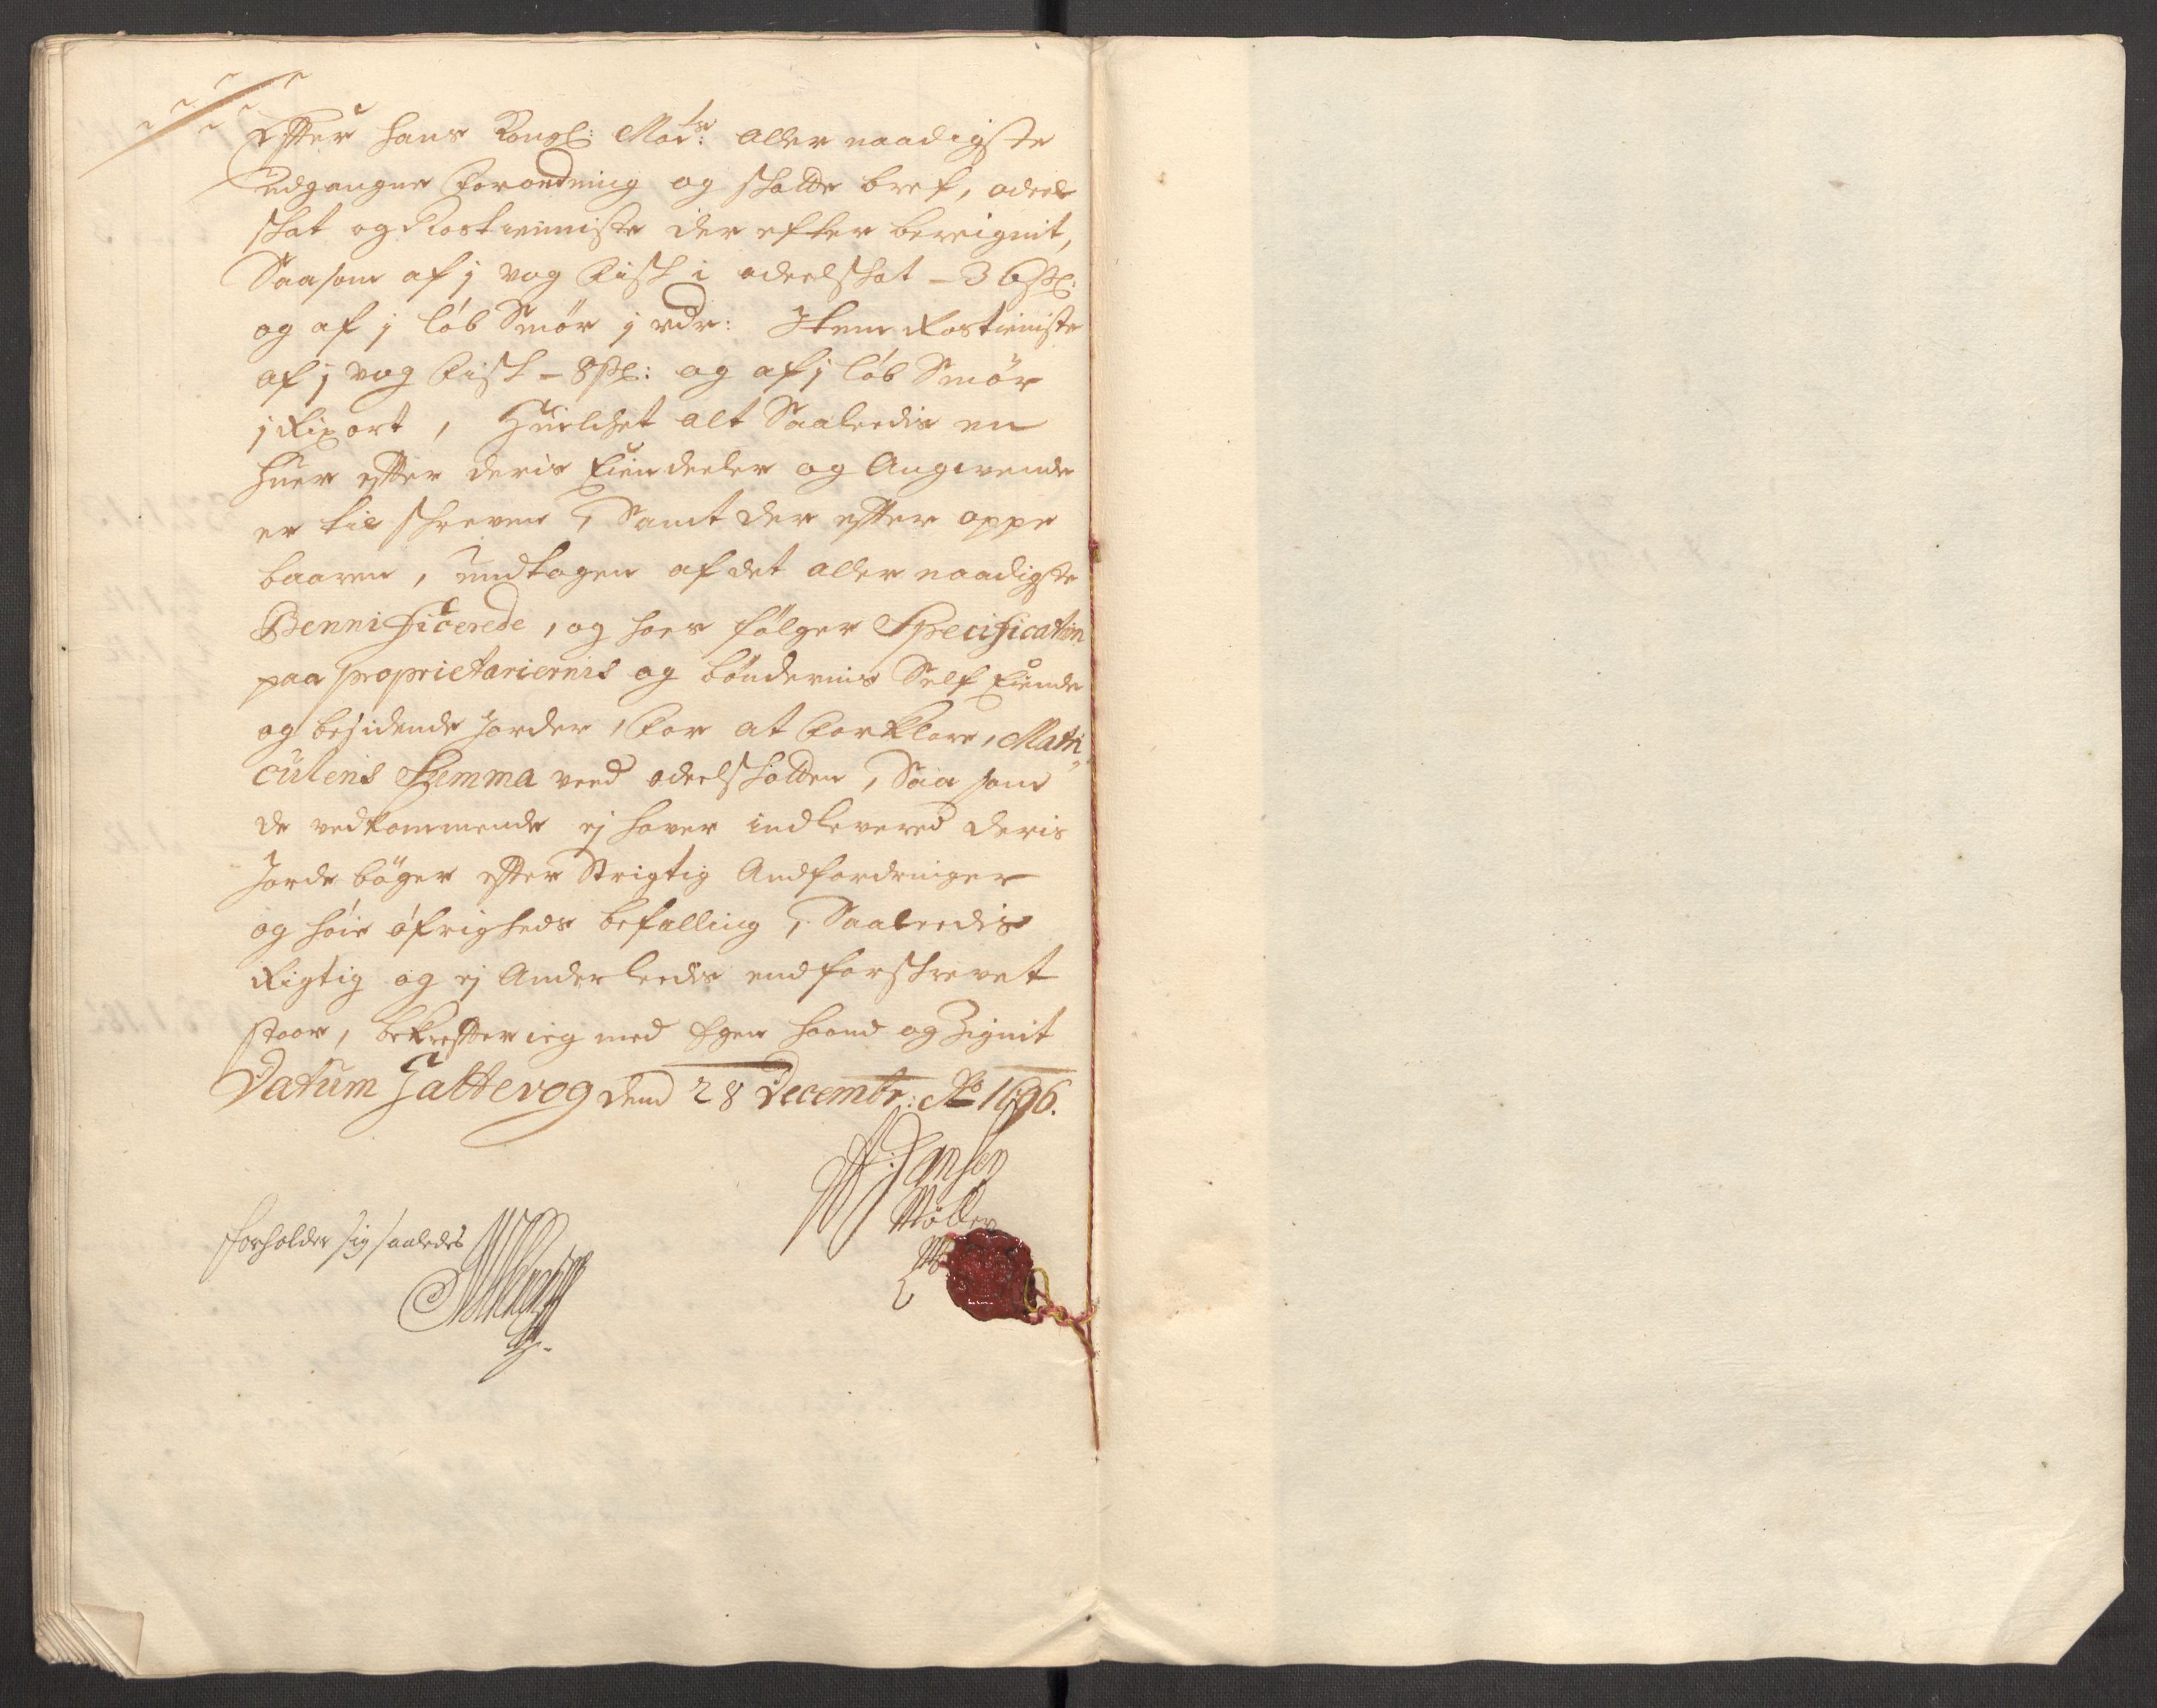 Effter hans Kongl: May:ts aller naadigste
udgangne forordning og skatte bref, odels
skat og Rostieniste der efter bereignit,
Saasom af j vog fisk i odelskat - 36 sk:
og af j løb Smør j rdr: Item Rostieniste
af j vog fisk - 8 sk: og af j løb Smør
j Rix ort, Huilchet alt Saaledis en
huer efter deris Eiendeeler og Angivende
er tilschreven, Samt der efter oppe
baaren, undtagen af det aller naadigste
Bennificerede, og hoes følger Specification
paa proprietariernis og bøndernis Self Eiende
og besidende Jorder, for at forklare, Matri„
culens Summa ved odelskatten, Saa som
de vedkommende ej haver indlevered deris
Jorde bøger efter Strigtig Andfordringer
og høie øfrigheds befalling, Saaleedis
Rigtig og ej Anderleedis end forskrevet
staar, bekrefter ieg med Egen haand og Zignit
Datum Hattevog dend 28 Decembr: Ao 1696.
Jansen
Møller
forholder sig saaledes